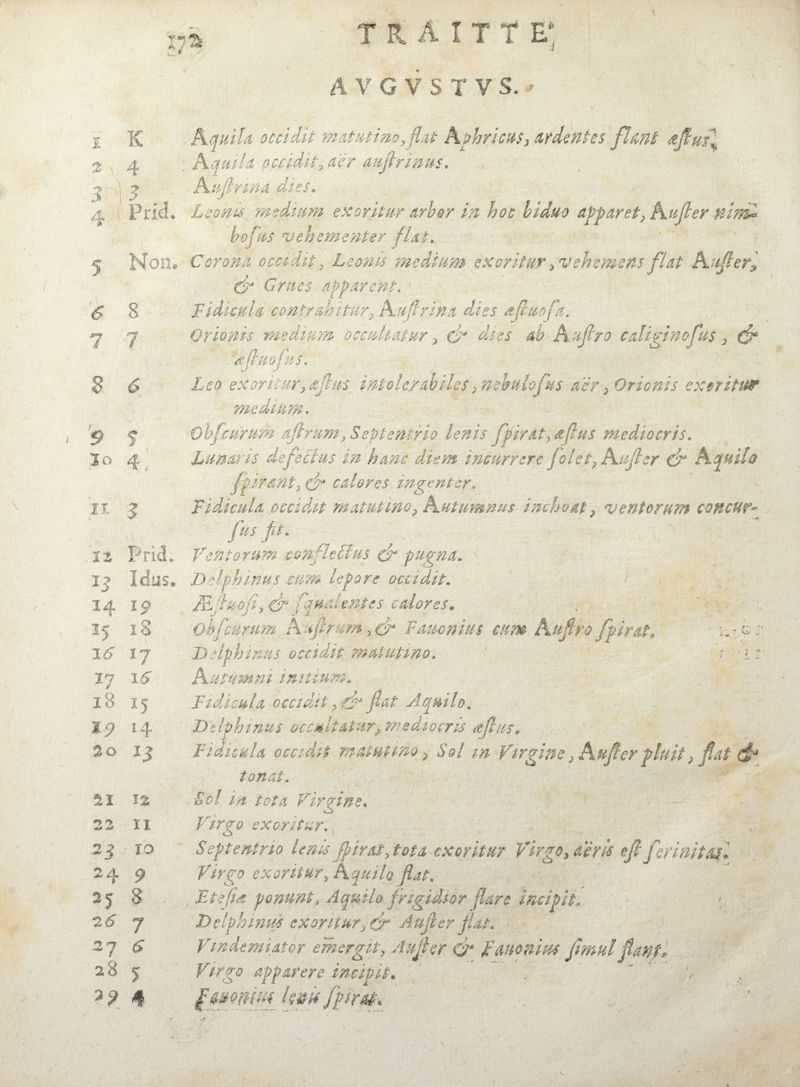 172 TRAITTE,
AVGVSTVS.
1 K Aquila occidit matutino, flat Aphricus, ardentes flant æſtus,
2 4 Aquila occidit, aër auſtrinus.
3 3 Auſtrina dies.
4 Prid. Leonis medium exoritur arbor in hoc biduo apparet, Auſter nim-
boſus vehementer flat.
5 Non. Corona occidit, Leonis medium exoritur, vehemens flat Auſter,
& Grues apparent.
6 8 Fidicula contrahitur, Auſtrina dies æſtuoſa.
7 7 Orionis medium occultatur, & dies ab Auſtro caliginoſus, &
æſtuoſus.
8 6 Leo exoritur, æſtus intolerabiles, nebuloſus aër, Orionis exoritur
medium.
9 5 Obſcurum aſtrum, Septentrio lenis ſpirat, æſtus mediocris.
10 4 Lunaris defectus in hanc diem incurrere ſolet, Auſter & Aquilo
ſpirant, & calores ingenter.
11 3 Fidicula occidit matutino, Autumnus inchoat, ventorum concur-
ſus fit.
12 Prid. Ventorum conflectus & pugna.
13 Idus. Delphinus cum lepore occidit.
14 19 Æſtuoſi, & ſqualentes calores.
15 18 Obſcurum Auſtrum, & Fauonius cum Auſtro ſpirat.
16 17 Delphinus occidit matutino.
17 16 Autumni initium.
18 15 Fidicula occidit, & flat Aquilo.
19 14 Delphinus occultatur, mediocris æſtus.
20 13 Fidicula occidit matutino, Sol in Virgine, Auſter pluit, flat &
tonat.
21 12 Sol in tota Virgine.
22 11 Virgo exoritur.
23 10 Septentrio lenis ſpirat, tota exoritur Virgo, aëris eſt ſerinitas.
24 9 Virgo exoritur, Aquilo flat.
25 8 Eteſiæ ponunt, Aquilo frigidior flare incipit.
26 7 Delphinus exoritur, & Auſter flat.
27 6 Vindemiator emergit, Auſter & Fauonius ſimul flant.
28 5 Virgo apparere incipit.
29 4 Fauonius lenis ſpirat.